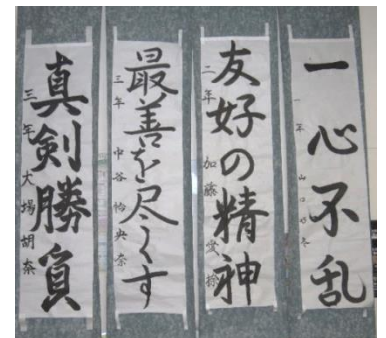 一心不乱
一年
友好の精神
二年 加藤愛
最善を尽くす
三年 中谷怜央奈
真剣勝負
三年 大場胡奈